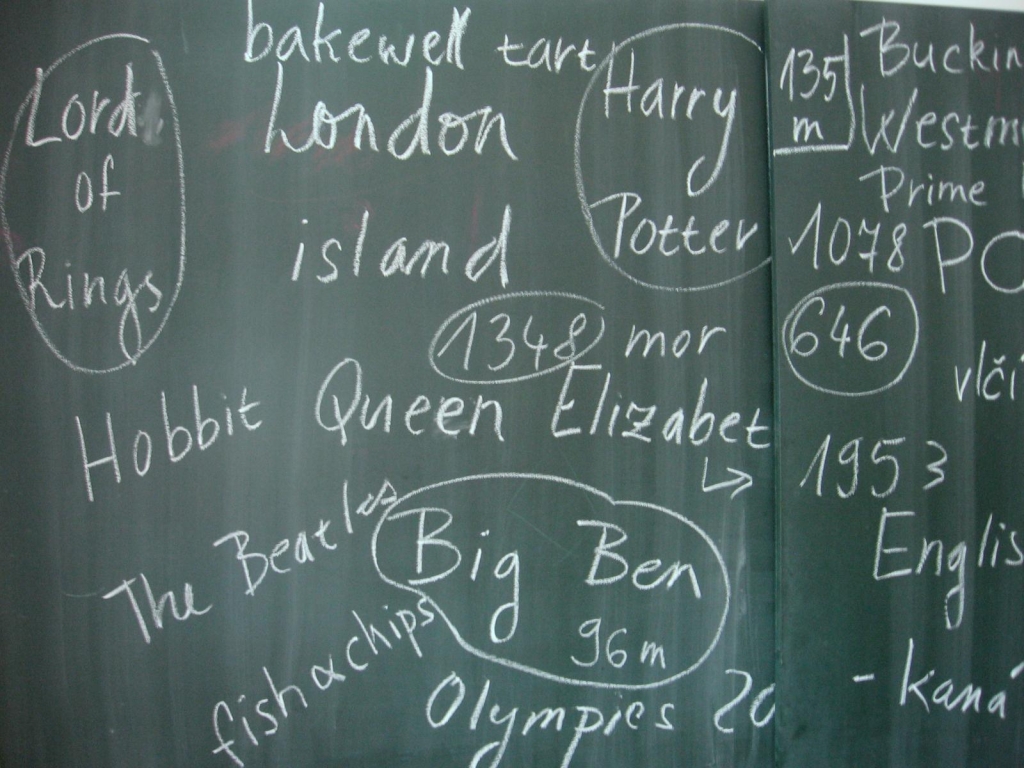 bakewell tart
Lord
of
Rings
London
Harry
Potter
island
1348 mor
Hobbit
Queen Elizabet
The Beatles
Big Ben
96m
fish & chips
Olympics 20
135
m
Buckin
Westm
Prime
1078 PO
646
vlčí
1953
Englis
- kaná